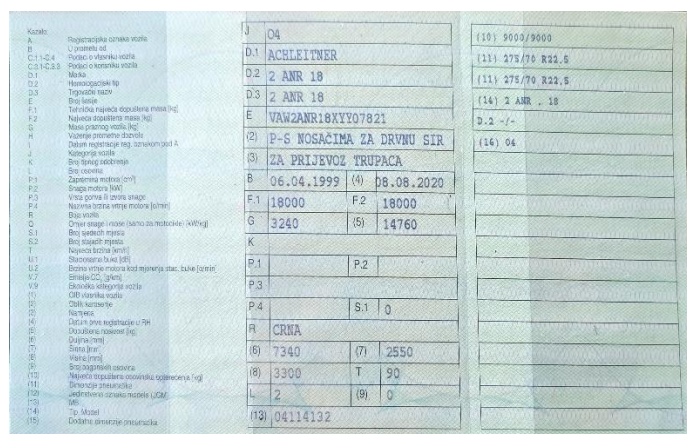 Kazalo
A Registracijska oznaka vozila
B U prometu od
C.1.1-C.4 Podaci o vlasniku vozila
C.3.1-C.3.3 Podaci o korisniku vozila
D.1 Marka
D.2 Homologacijski tip
D.3 Trgovački naziv
E Broj šasije
F.1 Tehnička najveća dopuštena masa [kg]
F.2 Najveća dopuštena masa [kg]
G Masa praznog vozila [kg]
H Važenje prometne dozvole
I Datum registracije reg. oznakom pod A
J Kategorija vozila
K Broj tipnog odobrenja
L Broj osovina
P.1 Zapremina motora [cm³]
P.2 Snaga motora [kW]
P.3 Vrsta goriva ili izvora snage
P.4 Nazivna brzina vrtnje motora [o/min]
R Boja vozila
Q Omjer snage i mase (samo za motocikle) [kW/kg]
S.1 Broj sjedećih mjesta
S.2 Broj stajaćih mjesta
T Najveća brzina [km/h]
U.1 Stacionarna buka [dB]
U.2 Brzina vrtnje motora kod mjerenja stac. buke [o/min]
V.7 Emisija CO₂ [g/km]
V.9 Ekološka kategorija vozila
(1) OIB vlasnika vozila
(2) Oblik karoserije
(3) Namjena
(4) Datum prve registracije u RH
(5) Dopuštena nosivost [kg]
(6) Duljina [mm]
(7) Širina [mm]
(8) Visina [mm]
(9) Broj pogonskih osovina
(10) Najveće dopušteno osovinsko opterećenje [kg]
(11) Dimenzije pneumatika
(12) Jedinstvena oznaka modela (JOM)
(13) MB
(14) Tip, Model
(15) Dodatne dimenzije pneumatika
J O4
D.1 ACHLEITNER
D.2 2 ANR 18
D.3 2 ANR 18
E VAW2ANR18XYY07821
(2) P-S NOSAČIMA ZA DRVNU SIR
(3) ZA PRIJEVOZ TRUPACA
B 06.04.1999 (4) 08.08.2020
F.1 18000 F.2 18000
G 3240 (5) 14760
K
P.1 P.2
P.3
P.4 S.1 0
R CRNA
(6) 7340 (7) 2550
(8) 3300 T 90
L 2 (9) 0
(13) 04114132
(10) 9000/9000
(11) 275/70 R22.5
(11) 275/70 R22.5
(14) 2 ANR . 18
D.2 -/-
(16) O4